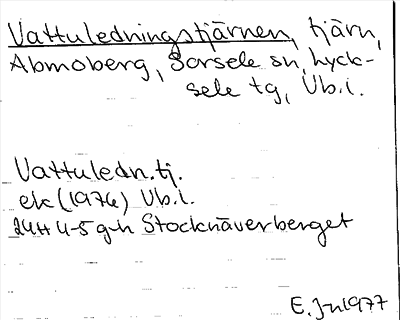 Vattuledningstjärnen, tjärn,
Abmoberg, Sorsele sn, Lyck-
sele tg, Vb.l.
Vattuledn.tj.
ek (1974) Vb.l.
24H 4-5 g-h Stocknäverberget
E. Jn 1977